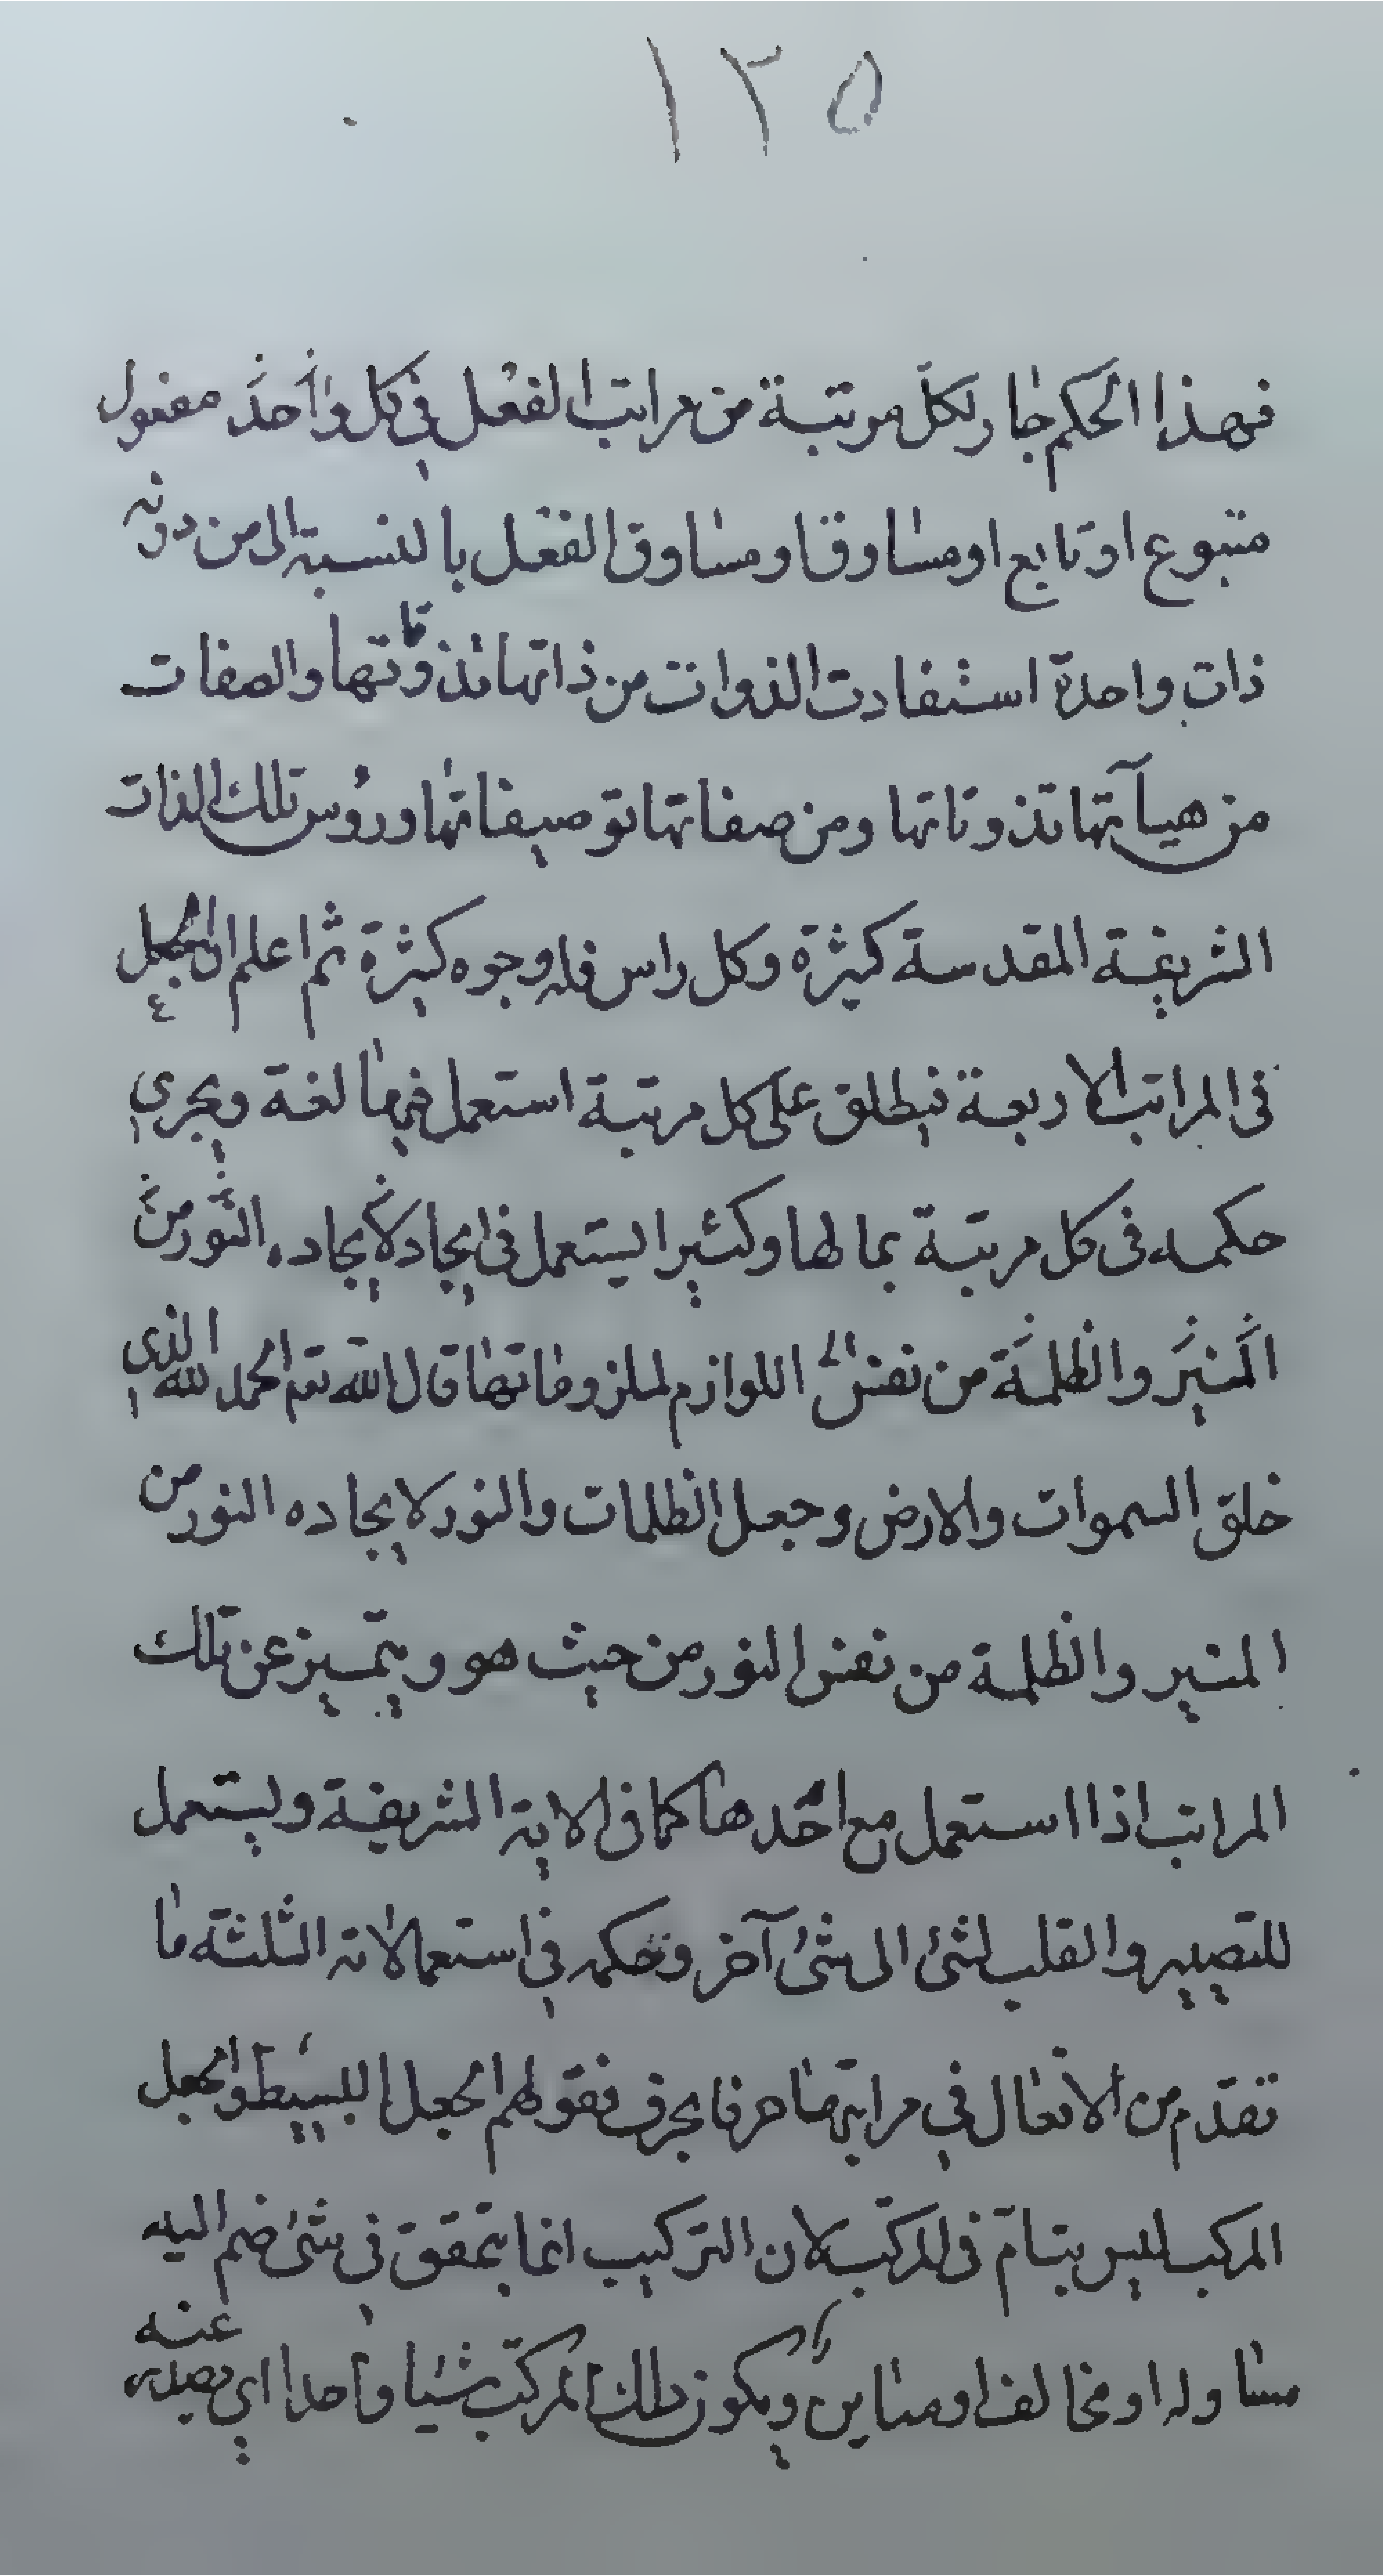 ١٣٥
فهذا الحكم جار لكل مرتبة من مراتب الفعل في كل واحد مفعول
متبوع او تابع او مساوق او مساوق الفعل بالنسبة الى من دونه
ذات واحدة استفادت الذوات من ذاتها تذوتاتها والصفات
من هيآتها تذوتاتها ومن صفاتها توصيفاتها ورؤس تلك الذات
الشريفة المقدسة كثيرة وكل راس فله وجوه كثيرة ثم اعلم ان الجعل
فى المراتب الاربعة فيطلق على كل مرتبة استعمل فيها لغة ويجري
حكمه فى كل مرتبة بما لها وكثيرا يستعمل فى ايجاد لايجاده النور من
المنير والظلمة من نفس اللوازم لملزوماتها قال الله تع الحمد لله الذي
خلق السموات والارض وجعل الظلمات والنور لايجاده النور من
المنير والظلمة من نفس النور من حيث هو ويتميز عن تلك
المراتب اذا استعمل مع احدها كما فى الاية الشريفة ويستعمل
للتصيير والقلب لشئ الى شئ آخر وحكمه في استعمالاته الثلثة ما
تقدم من الافعال في مراتبها حرفا بحرف فقولهم الجعل البسيط والجعل
المركب ليس بتام فى المركب لان التركيب انما يتحقق فى شئ ضم اليه
مساو له او مخالف او مباين ويكون ذلك المركب شيئا واحدا اي يصدر عنه